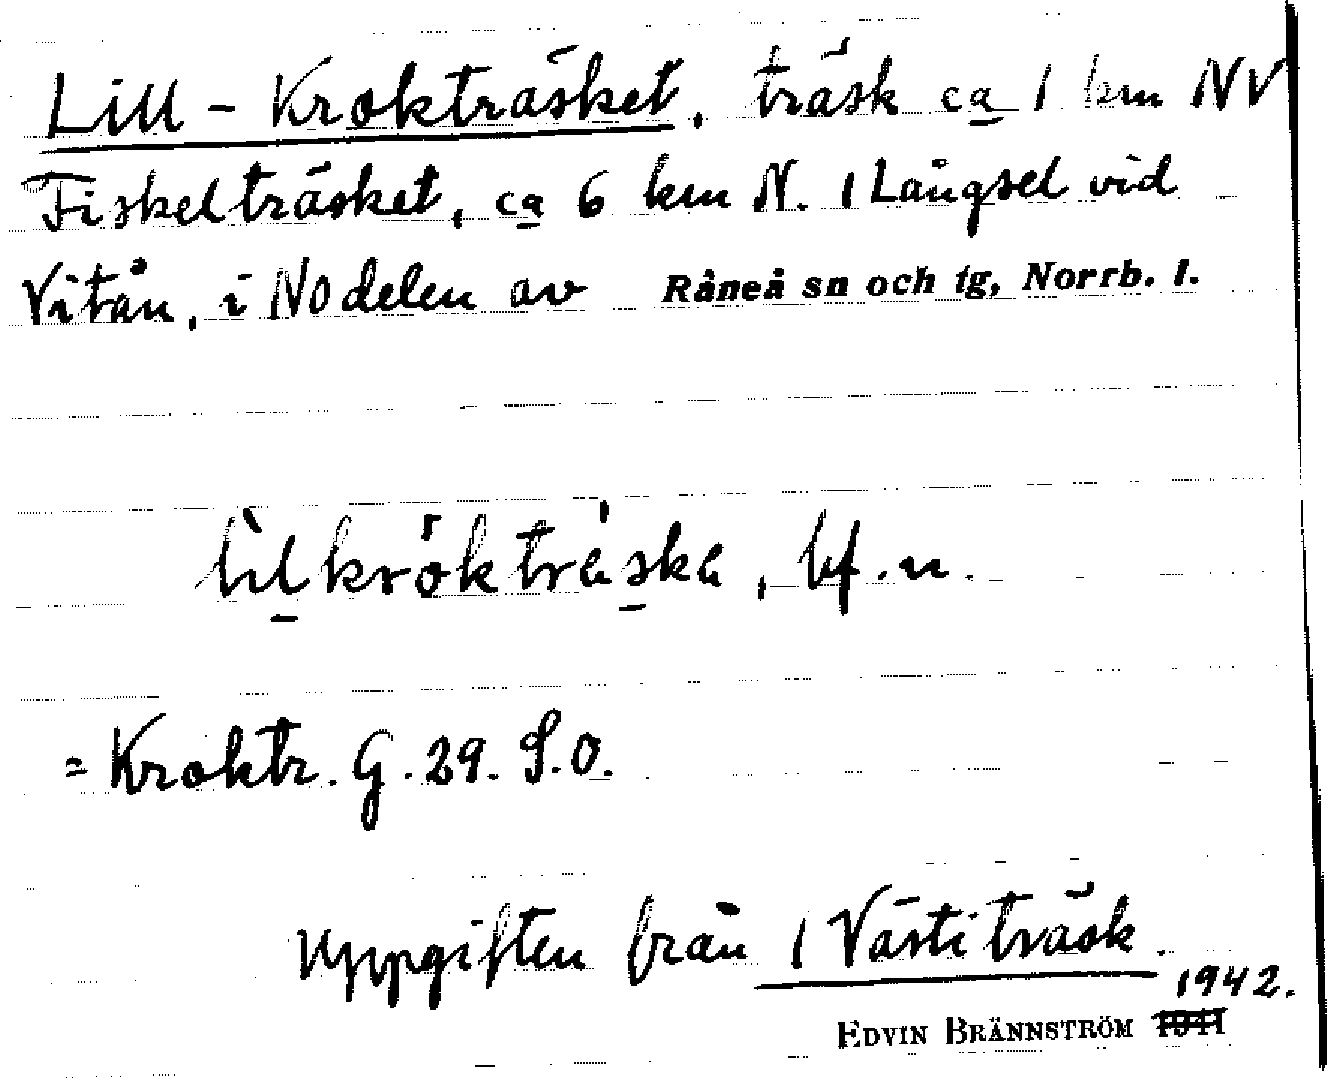 Lill-Krokträsket, träsk ca 1 km NV
Fiskelträsket, ca 6 km N. 1 Långsel vid
Vitån, i NO delen av Råneå sn och tg, Norrb. l.
lilkrökträska, bf.n.
= Kroktr. G. 29. S.O.
Uppgiften från 1 Västiträsk.
1942.
EDVIN BRÄNNSTRÖM 1941